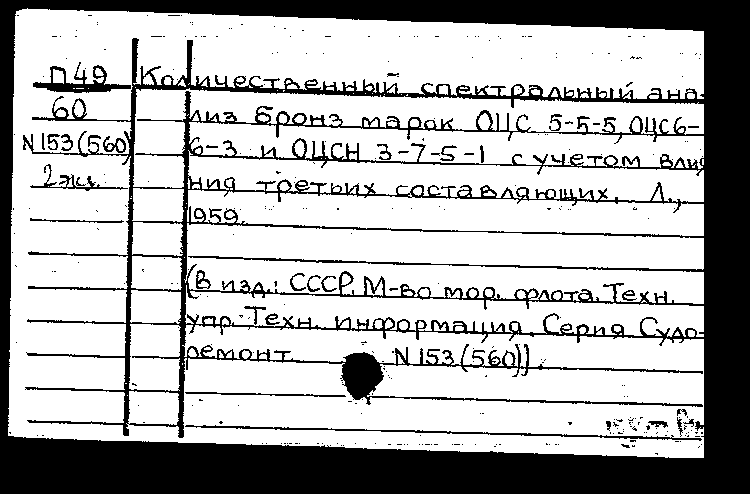 П49 Количественный спектральный ана-
60 лиз бронз марок ОЦС 5-5-5, ОЦС6-
N153(560) 6-3 и ОЦСН 3-7-5-1 с учетом влия
2 экз. ния третьих составляющих. Л.,
1959.
(В изд.: СССР. М-во мор. флота. Техн.
упр. Техн. информация. Серия Судо-
ремонт. N153(560)).